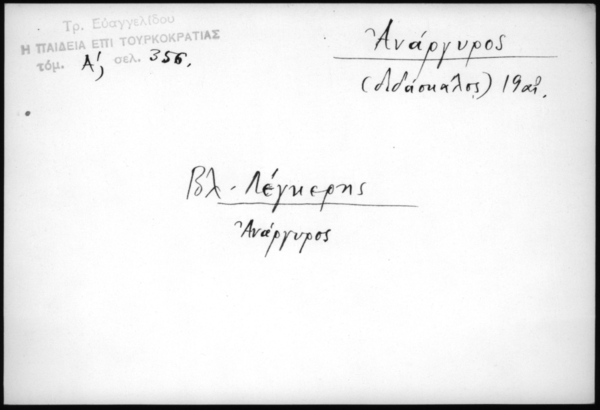 Τρ. Εὐαγγελίδου
Η ΠΑΙΔΕΙΑ ΕΠΙ ΤΟΥΡΚΟΚΡΑΤΙΑΣ
τόμ. Α', σελ. 356.
Ἀνάργυρος
(διδάσκαλος) 19 αἰ.
Βλ. Λέγκερης
Ἀνάργυρος